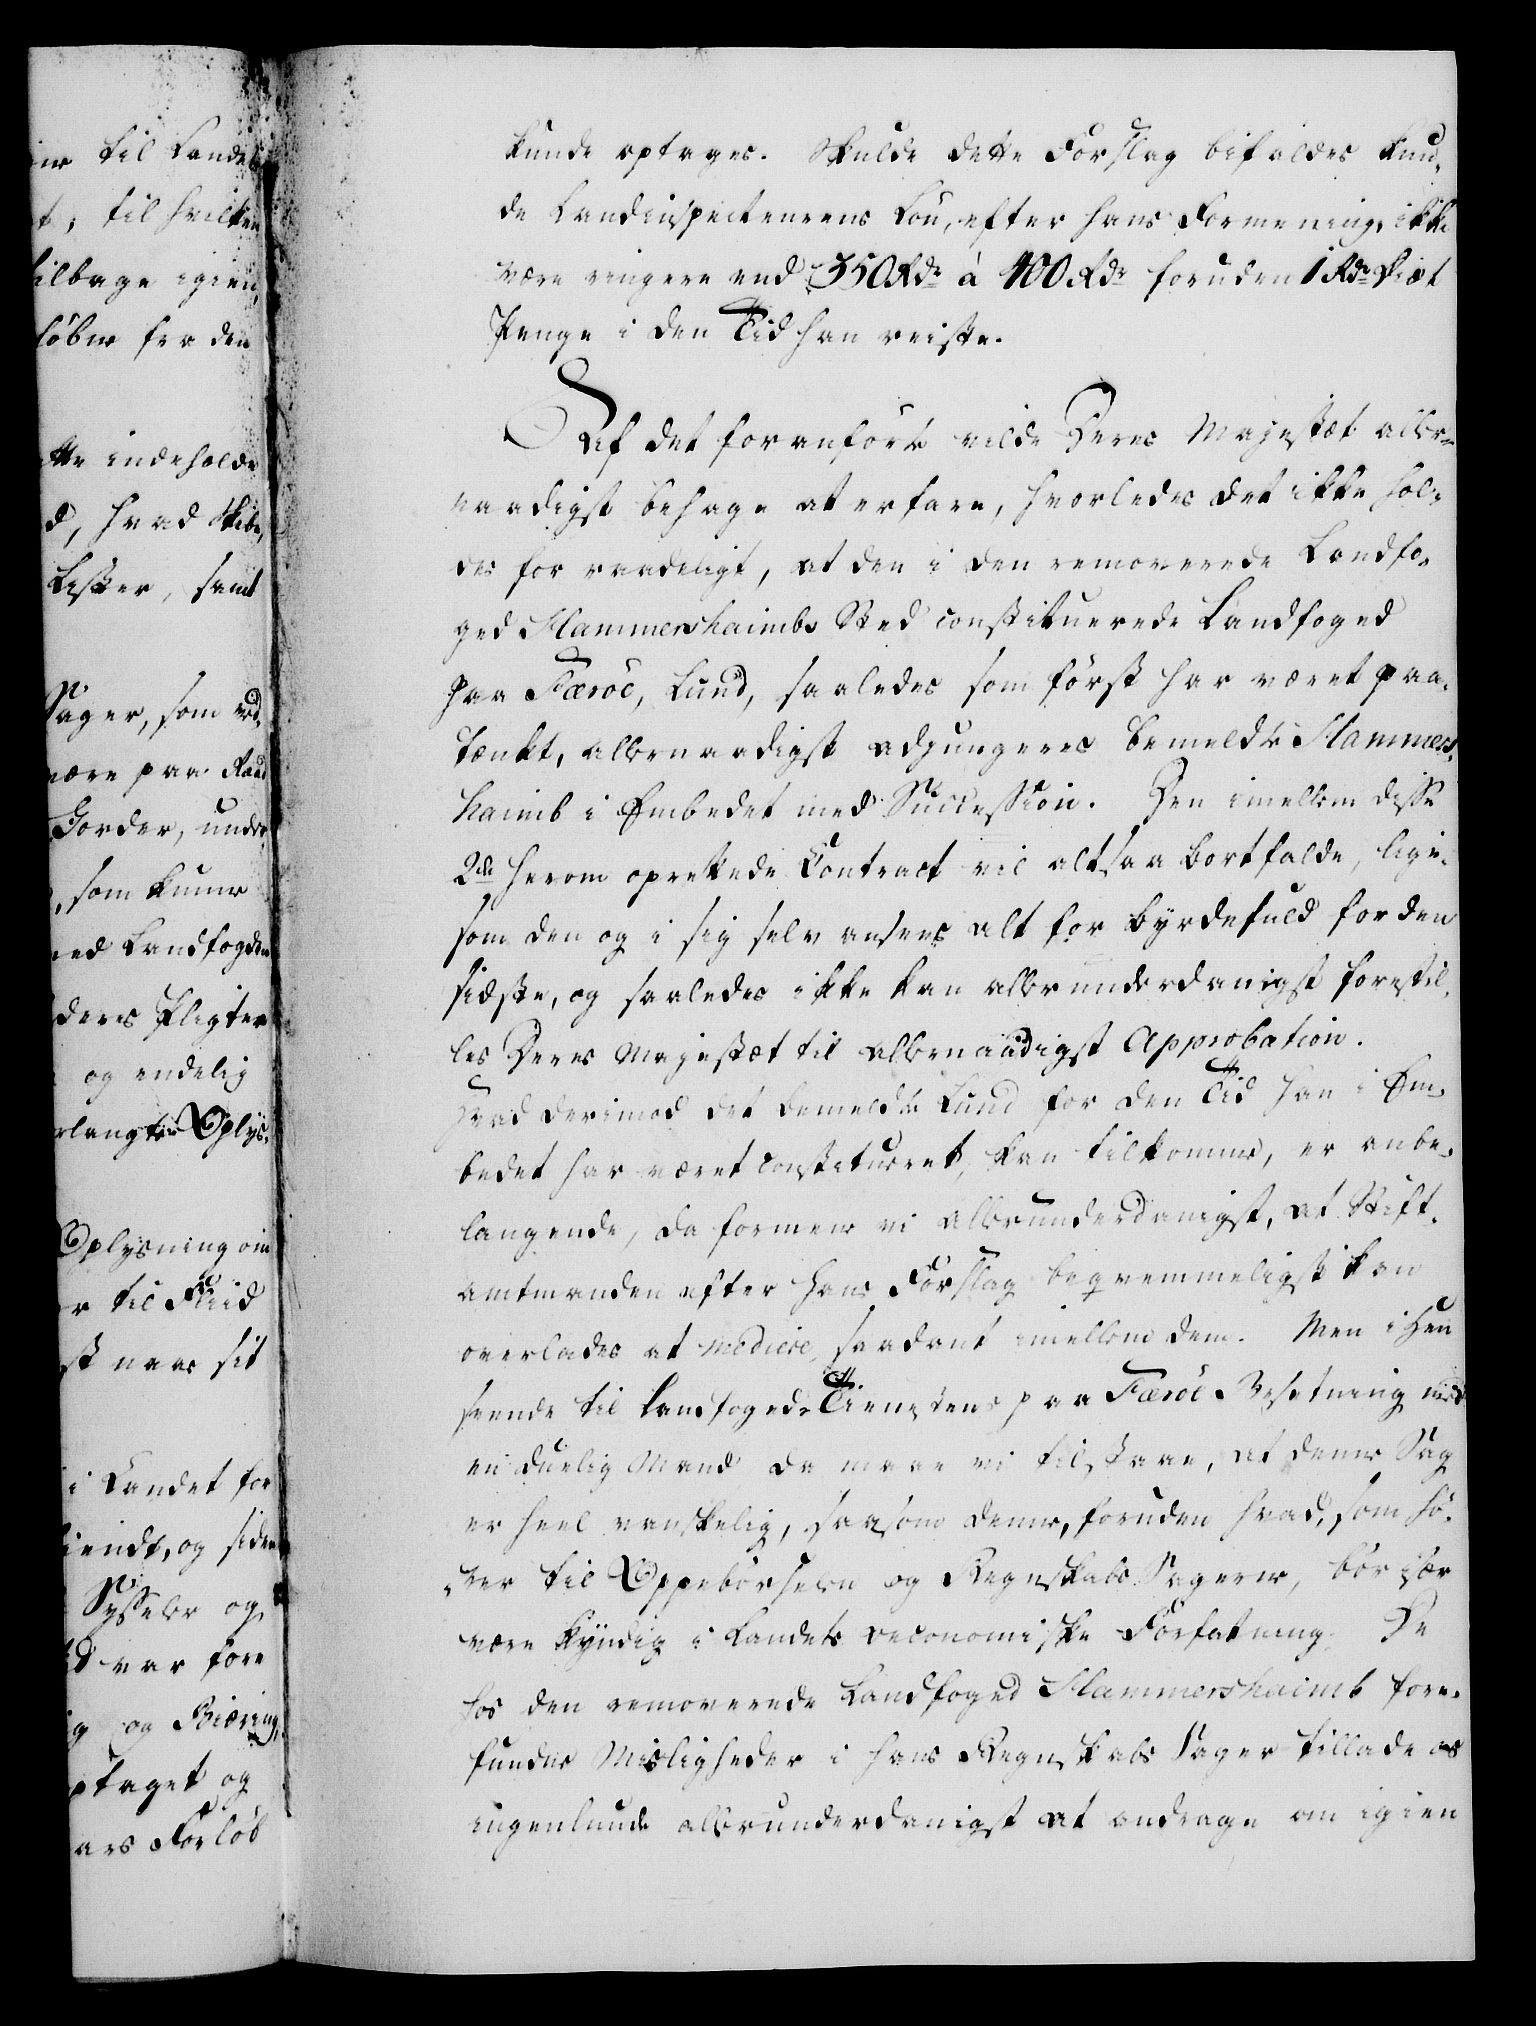 til Landets
t, til hvilken
tilbage igien,
løber fra den
indeholde
d, hvad Skibe,
Lister, samt
Sager, som ved,
være paa Raad
Gorder, under,
, som kunne
ned Landfogden
deres Pligter
og endelig
rlangte Oplys,
Oplysning om
r til Fliid
st naar sit
i Landet for
kiendt, og siden
Sysseler og
var fore
g og Biering,
ptaget og
ars Forløb
kunde optages. Skulde dette Forslag bifaldes kun,
de Landinspecteurens Løn, efter hans Formening, ikke
være ringere end 350 Rdr à 400 Rdr foruden 1 Rdr Diæt
Penge i den Tid han reiste.
Af det foranførte vilde Deres Majestæt aller-
naadigst behage at erfare, hvorledes det ikke hol,
des for raadeligt, at den i den removerede Landfo,
ged Hammershaimbs Sted constituerede Landfoged
paa Færöe, Lund, saaledes som først har været paa,
tænkt, allernaadigst adjungeres bemeldte Hammers,
haimb i Embedet med Succession. Den imellem disse
2de herom oprettede Contract vil altsaa bortfalde, lige,
som den og i sig selv ansees alt for byrdefuld for den
sidste, og saaledes ikke kan allerunderdanigst forestil,
les Deres Majestæt til allernaadigst Approbation.
Hvad derimod det bemeldte Lund for den Tid han i Em,
bedet har været constitueret, kan tilkomme, er anbe,
langende, da formene vi allerunderdanigst, at Stift,
amtmanden efter hans Forslag beqvemmeligst kan
overlades at mediere saadant imellem dem. Men i Hen
seende til Landfoged-Tienestens paa Færöe Besetning med
en duelig Mand da maae vi tilstaae, at denne Sag
er heel vanskelig, saasom denne, foruden hvad, som hø,
rer til Oppebørselen og Regnskabs Sagerne, bør især
være kyndig i Landets oeconomiske Forfatning. De
hos den removerede Landfoged Hammershaimb fore,
fundne Misligheder i hans Regnskabs Sager tillade os
ingenlunde allerunderdanigst at andrage om igien